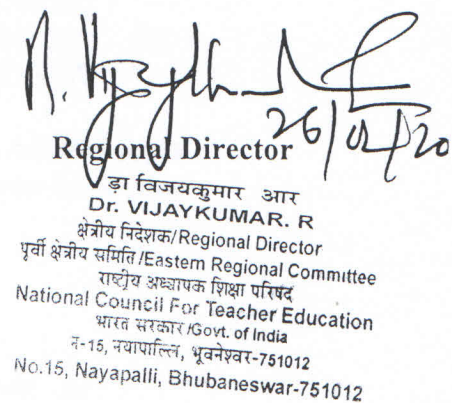 R. Vijaykumar
26/02/20
Regional Director
ड़ा विजयकुमार आर
Dr. VIJAYKUMAR. R
क्षेत्रीय निदेशक/Regional Director
पूर्वी क्षेत्रीय समिति/Eastern Regional Committee
राष्ट्रीय अध्यापक शिक्षा परिषद
National Council For Teacher Education
भारत सरकार/Govt. of India
न-15, नयापाल्लि, भूवनेश्वर-751012
No.15, Nayapalli, Bhubaneswar-751012